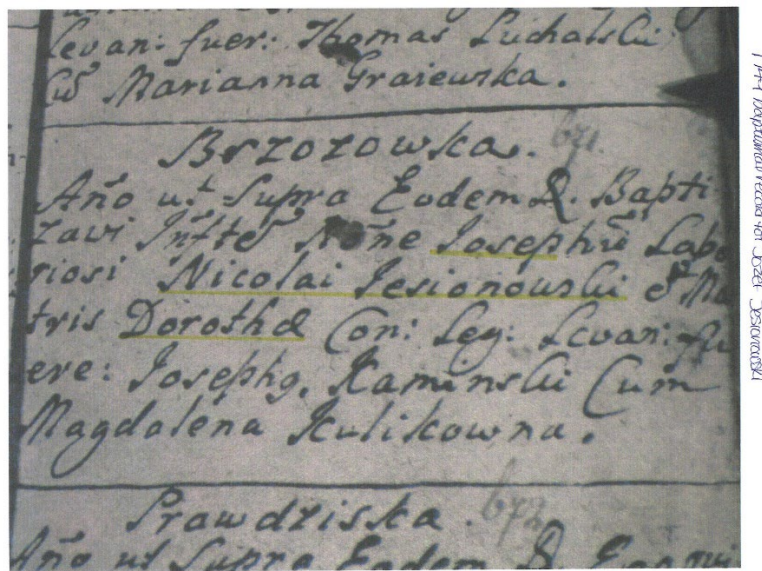 Levan: fuer: Thomas Luchalski
Cū Marianna Graiewska.
Brzozowka. 671.
Año ut Supra Eodem D. Bapti
zavi Infte Noñe Josephū Labo
riosi Nicolai Jesionowski & Ma
tris Dorothæ Con: Leg: Levan: fu
ere: Josephg, Kaminski Cum
Magdalena Kulikowna.
Prawdziska. 672
Año ut Supra Eodem D.
baptismal record for Jozef Jesionowski